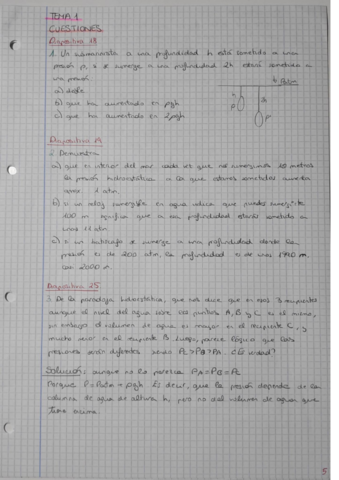 TEMA 1
CUESTIONES
Diapositiva 18
1. Un submarinista a una profundidad h está sometido a una
presión p, si se sumerge a una profundidad 2h estará sometido a
una presión
a) doble
b) que ha aumentado en ρgh
c) que ha aumentado en 2ρgh
Patm
h
2h
P
P
Diapositiva 19
2. Demuestra
a) que en interior del mar cada vez que nos sumergimos 10 metros
la presión hidrostática a la que estamos sometidos aumenta
aprox. 1 atm.
b) si un reloj sumergible en agua indica que puedes sumergirte
100 m significa que a esa profundidad estarás sometido a
unas 11 atm
c) si un batiscafo se sumerge a una profundidad donde la
presión es de 200 atm, la profundidad es de unos 1990 m
casi 2000 m.
Diapositiva 25
3. De la paradoja hidrostática, que nos dice que en esos 3 recipientes
aunque el nivel del agua sobre los puntos A, B y C es el mismo,
sin embargo el volumen de agua es mayor en el recipiente C, y
mucho menor en el recipiente B. Luego, parece lógico que las
presiones serán diferentes siendo Pc>PB>PA. ¿Es verdad?
Solución: aunque no lo parezca PA=PB=Pc
Porque P=Patm + ρgh Es decir, que la presión depende de la
columna de agua de altura h, pero no del volumen de agua que
tiene encima.
5